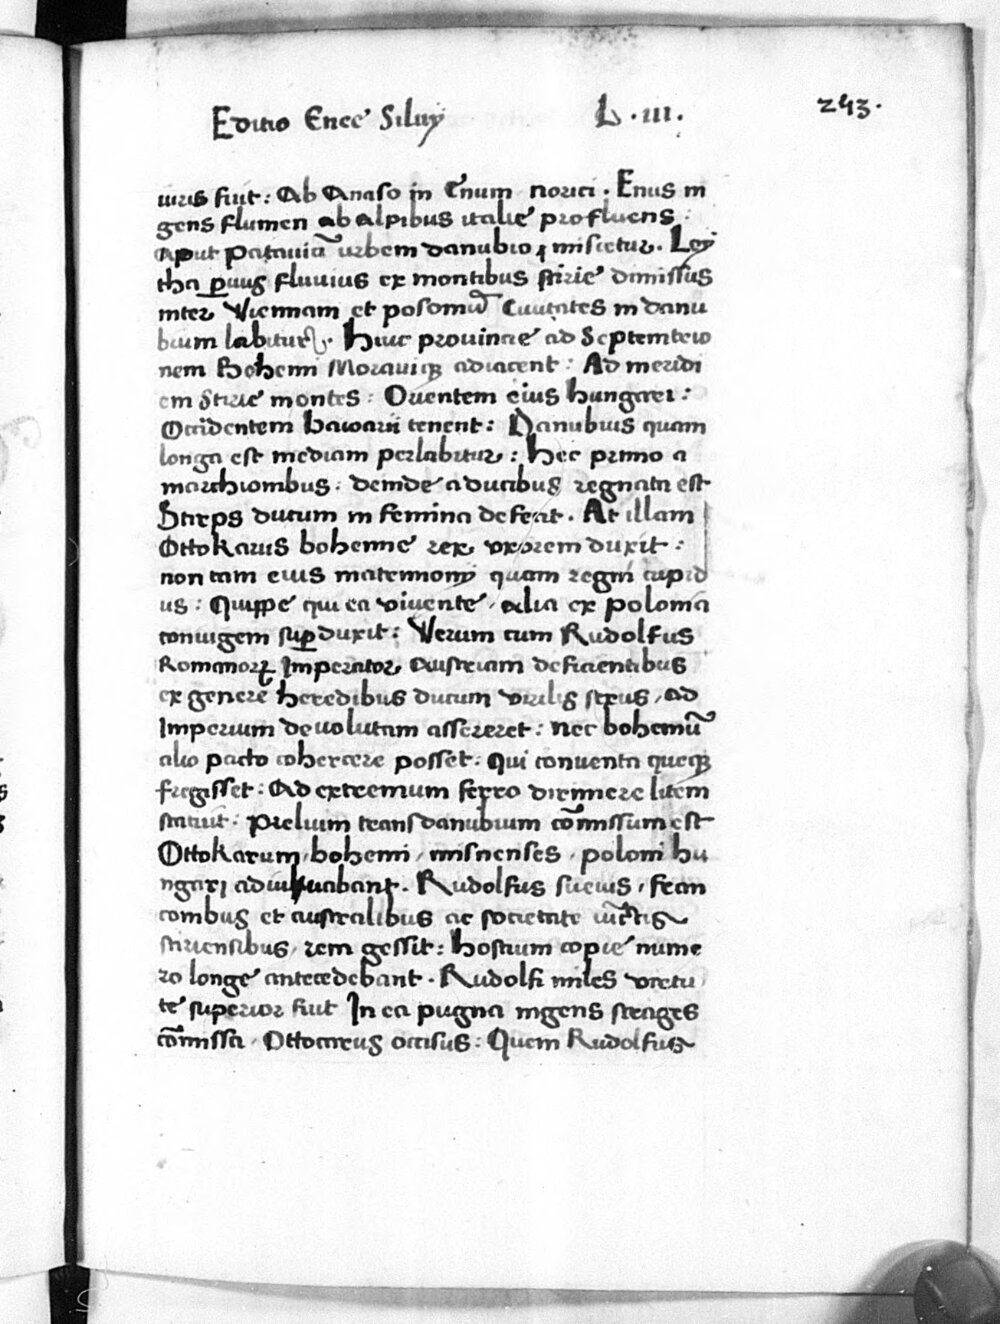 Editio Eneę Siluij L · III · 243 ·
iuris fuit : Ab Anaso in Enum norici · Enus in
gens flumen ab alpibus italie profluens :
aput Patauiā urbem danubio ꝯmiscetur · Ley
tha ꝑuus fluuius ex montibus stirie dimissus
inter Viennam et posoniū Ciuitates in danu
bium labitur · Huic prouincie ad Septemtrio
nem Bohemi Morauiqꝫ adiacent : Ad meridi
em Stirie montes : Orientem eius hungarei :
Occidentem bawarii tenent : Danubius quam
longa est mediam perlabitur : hec primo a
marchionibus : deinde a ducibus regnata est
Stirps ducum in femina defecit · At illam
Ottokarus bohemie rex, vxorem duxit :
non tam eius matrimonij quam regni cupid
us : Quippe qui ea viuente, alia ex polonia
coniugem suꝑduxit : Verum cum Rudolfus
Romanorꝝ Imperator, Austriam deficientibus
ex genere heredibus ducum virilis sexus, ad
Imperium deuolutam assereret : nec bohemū
alio pacto cohercere posset : qui conuenta queqꝫ
fregisset : Ad extremum ferro dirimere litem
statuit : Prelium transdanubium cōmissum est
Ottokarum, bohemi, misnenses, poloni hu
ngari adiuuabant · Rudolfus sueuis, fran
conibus et australibus ac societate iūctis
stiriensibus, rem gessit : hostium copie nume
ro longe antecedebant · Rudolfi miles virtu
te superior fuit In ea pugna ingens strages
cōmissa, Ottocarus occisus : Quem Rudolfus